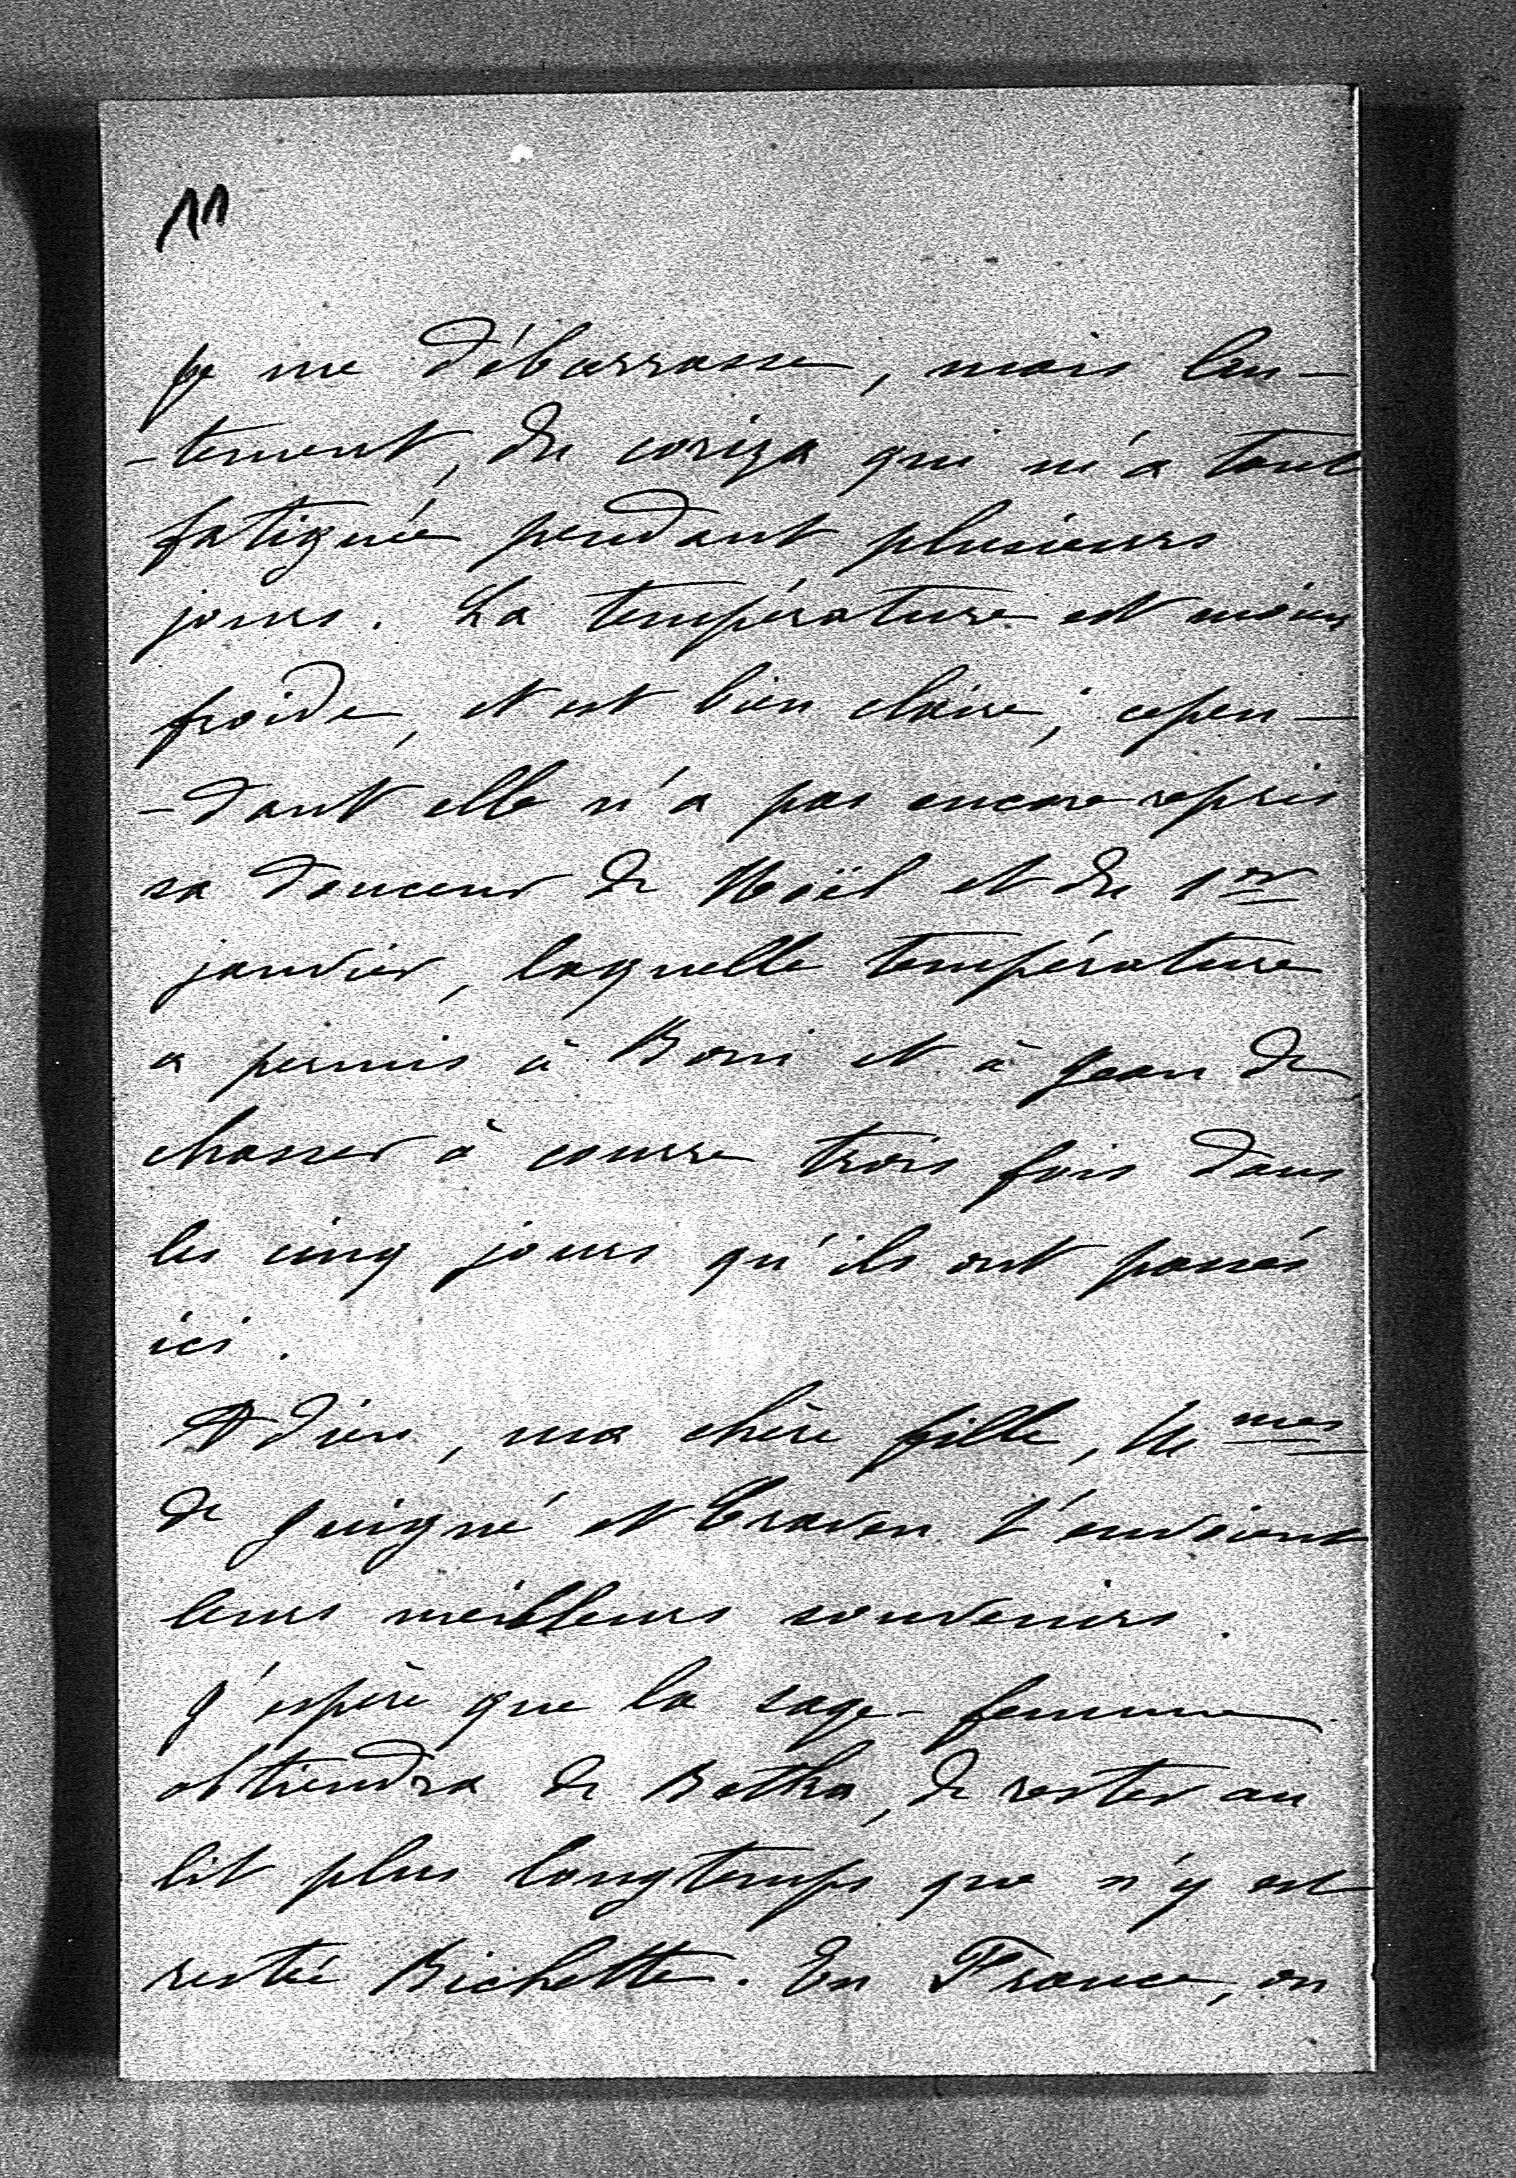 11
je me débarrasse, mais len-
-tement, du coriza qui m'a tant
fatiguée pendant plusieurs
jours. La température est moins
froide, et est bien claire; cepen-
-dant elle n'a pas encore repris
sa douceur de Noël et du 1er
janvier, laquelle température
a permis à Boni et à Jean de
chasser à courre trois fois dans
les cinq jours qu'ils ont passés
ici.
Adieu, ma chère fille, Mmes
de Guigné et Craven t'envoient
leurs meilleurs souvenirs.
J'espère que la sage-femme
obtiendra de Betka, de rester au
lit plus longtemps que n'y est
restée Bichette. En France, on